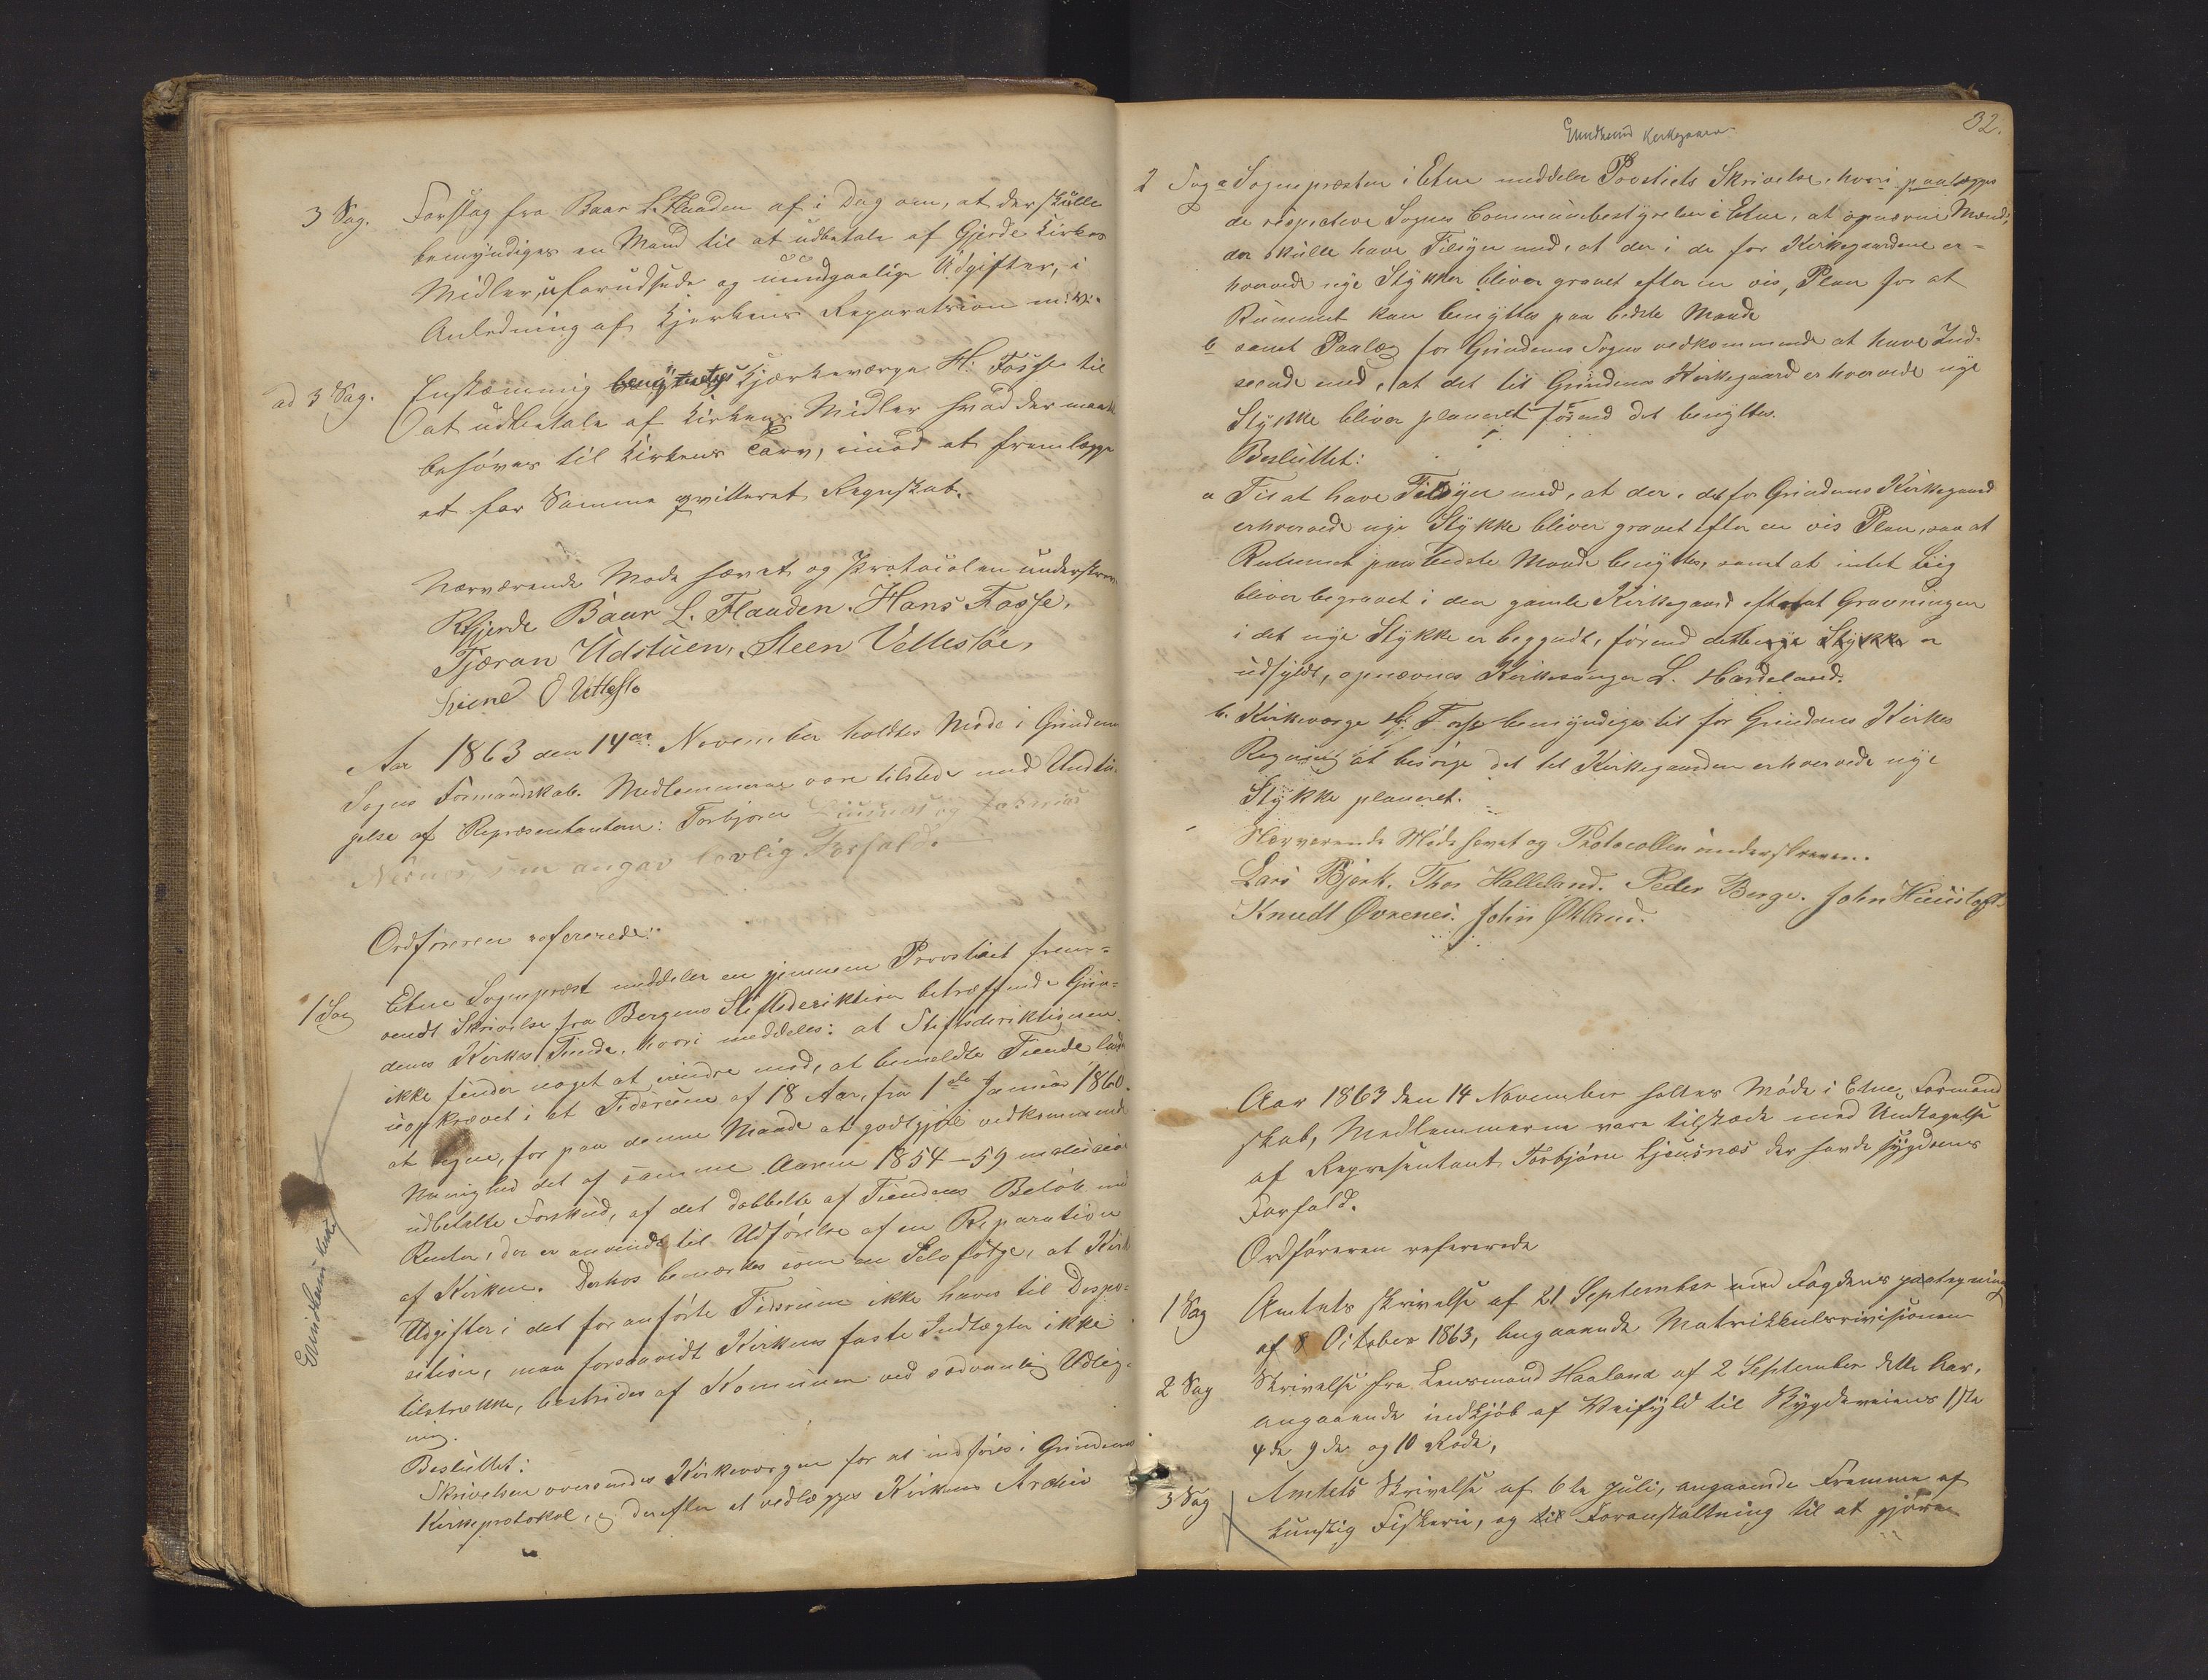 3 Sag. Forslag fra Baar L. Flaaden af i Dag om, at der skulle
bemyndiges en Mand til at udbetale af Gjerde Kirkes
Midler, uforudseede og uundgaalige Udgifter, i
Anledning af Kjerkens Reparation m: v:
ad 3 Sag. Enstemmig Kjerkeværge H. Fosse til
at udbetale af Kirkens Midler hvad der maatte
behøves til Kirkens Tarv, imod at fremlægge
et for Samme qvitteret Regnskab.
Nærværende Møde hævet og Protocolen underskreven
RGjerde Baar L. Flaaden. Hans Fosse.
Tjæran Udstuen, Steen Vettestøe,
Svend O Vettestø
Aar 1863 den 14de November holdtes Møde i Grindens
Sogns Formandskab. Medlemmerne vare tilstede med Undta-
gelse af Repræsentanterne: Torbjørn Liusnes og Rasmus
Nernes, som angav lovlig Forfald.
Ordføreren refererede:
1 Sag Etne Sognepræst meddeler en gjennem Provstiet frem-
sendt Skrivelse fra Bergens Stiftsdirektion betræffende Grin-
dens Kirkes Tiende, hvori meddeles: at Stiftsdirektionen
ikke finder noget at erindre mod, at bemeldte Tiende lades
uopkrævet i et Tidsrum af 18 Aar, fra 1ste Januar 1860
at regne, for paa denne Maade at godtgjøre vedkommende
Menighed det af samme Aarene 1854-59 inclusive
udbetalte Forskud, af det dobbelte af Tiendens Beløb med
Renter, der er anvendt til Udførelse af en Reparation
af Kirken. Derhos bemærkes som en Selvfølge, at Kirkens
Udgifter i det for anførte Tidsrum ikke haves til Dispo-
sition, maa forsaavidt Kirkens faste Indtægter ikke
tilstrække, bestrides af Kommunen ved sædvanlig Udlig-
ning.
Besluttet:
Skrivelsen oversendes Kirkeværgen for at indføres i Grindens
Kirkeprotokol, og derefter at vedlægges Kirkens Archiv
Grindheim Kirke
Grindheim Kirkegaard
32.
2 Sag a Sognepræsten i Etne meddeler Provstiets Skrivelse, hvori paalægges
de respective Sognes Communbestyrelser i Etne, at opnævne Mænd,
der skulle have Tilsyn med, at der i de for Kirkegaardene er-
hvervede nye Stykker bliver gravet efter en vis, Plan for at
Rummet kan benyttes paa bedste Maade
b samt Paalæg for Grindens Sogns vedkommende at have Ind-
seende med, at det til Grindens Kirkegaard erhvervede nye
Stykke bliver planeret førend det benyttes.
Besluttet:
a Til at have Tilsyn med, at der, i det for Grindens Kirkegaard
erhvervede nye Stykke bliver gravet efter en vis Plan, saa at
Rummet paa bedste Maade benyttes, samt at intet Liig
bliver begravet i den gamle Kirkegaard efterat Gravningen
i det nye Stykke er begyndt, førend dette Stykke er
udfyldt, opnævnes Kirkesanger L. Hardeland.
b. Kirkeværge H. Fosse bemyndiges til for Grindens Kirkes
Regning at besørge det til Kirkegaarden erhvervede nye
Stykke planeret.
Nærværende Møde hævet og Protocollen underskreven.
Lars Bjørk. Thor Halleland. Peder Berge. John Huustoft.
Knudt Øvrenes. John Øklend.
Aar 1863 den 14 November holtes Møde i Etne Formand
skab, Medlemmerne vare tilstæde med Undtagelse
af Representant Torbjørn Ljeusnæs der havde sygdoms
Forfald.
Ordføreren refererede
1 Sag Amtets skrivelse af 21 September med Fogdens paategning
af 8 October 1863, angaaende Matrikkulsrevisionen
2 Sag Skrivelse fra Lensmand Haaland af 2 September dette Aar,
angaaende indkjøb af Veifyld til Bygdeveiens 1ste
4de 9de og 10 Rode,
3 Sag Amtets Skrivelse af 6te Juli, angaaende Fremme af
kunstig Fiskerie, og til Foranstaltning til at gjøre